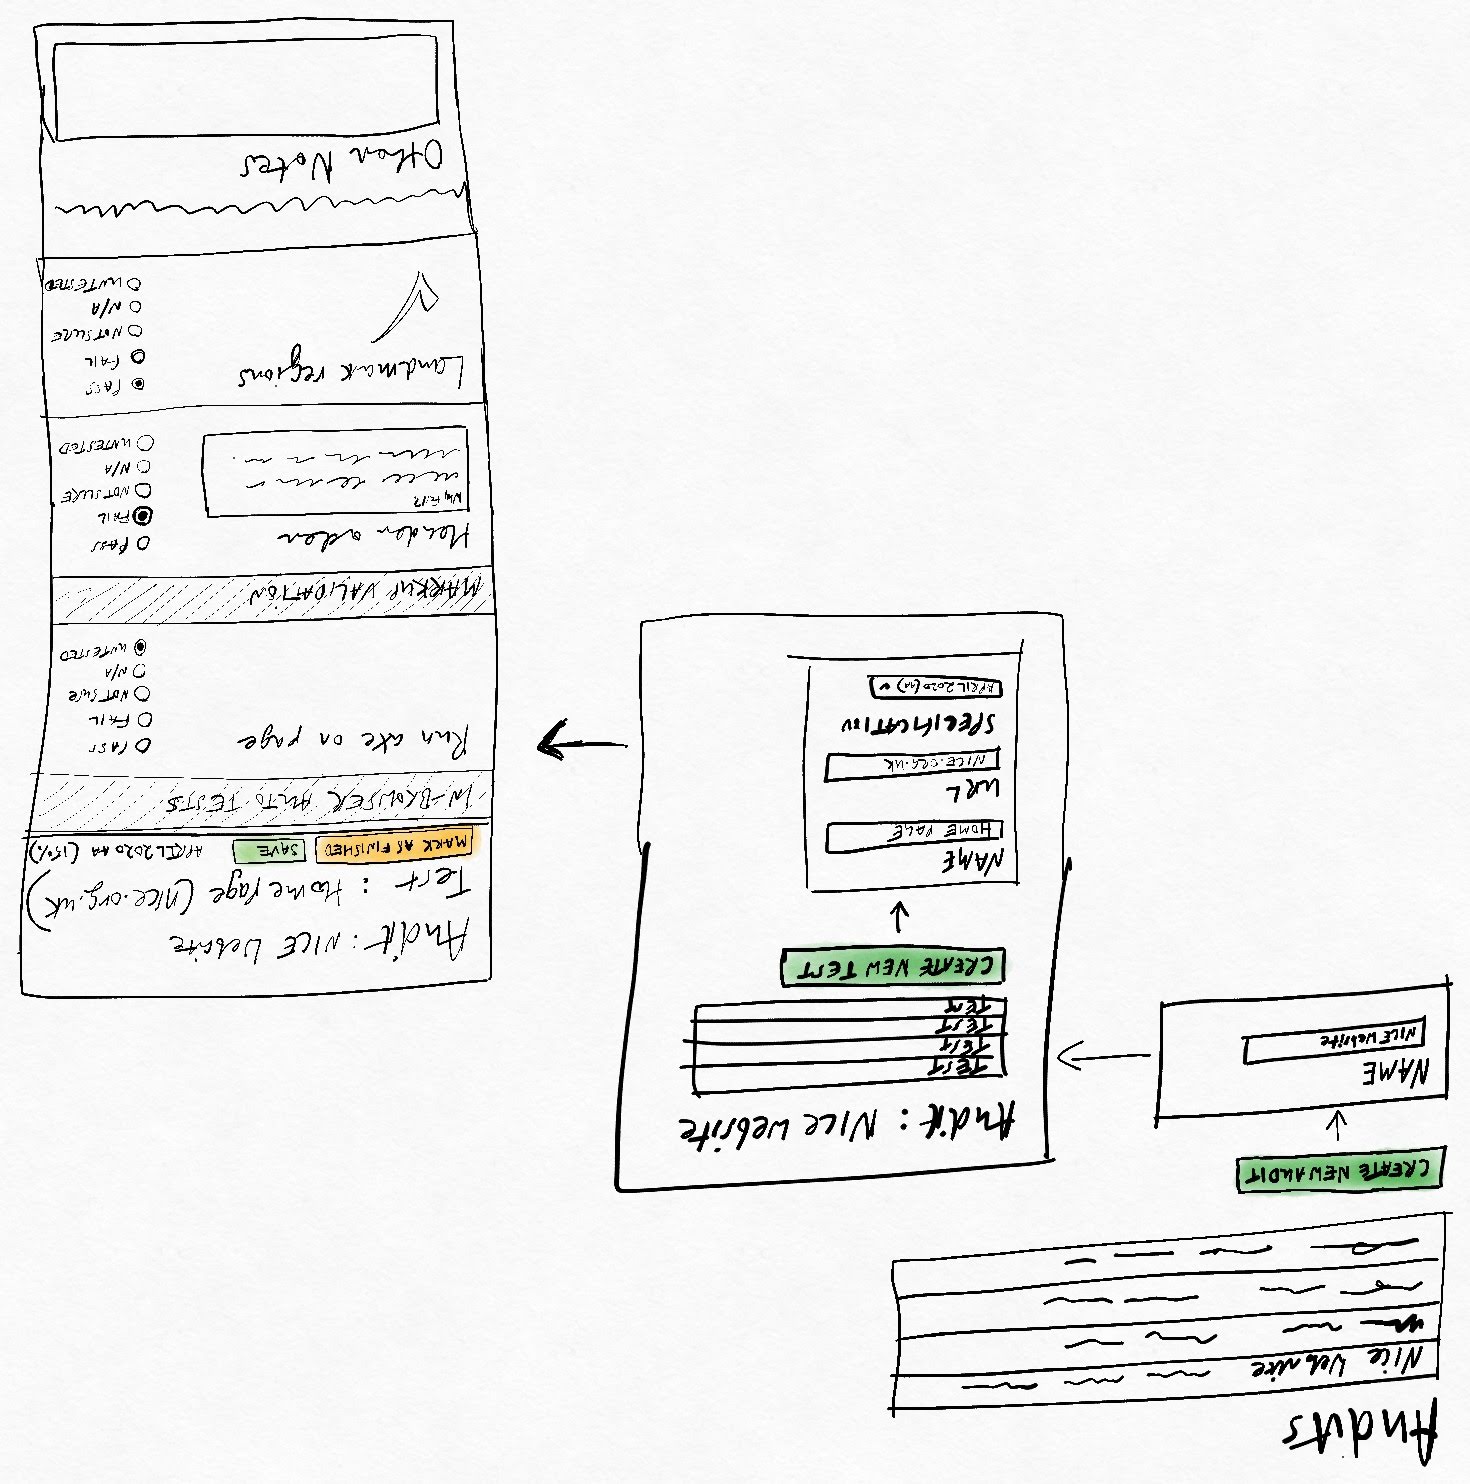 Audits
Nice Website
CREATE NEW AUDIT
NAME
NICE Website
Audit: NICE Website
TEST
TEST
TEST
TEST
CREATE NEW TEST
NAME
HOME PAGE
URL
NICE.ORG.UK
SPECIFICATION
APRIL 2020 (AA)
Audit: NICE Website
Test : Home page (nice.org.uk)
MARK AS FINISHED SAVE APRIL 2020 AA (15%)
IN-BROWSER AUTO TESTS
Run axe on page
PASS
FAIL
NOT SURE
N/A
UNTESTED
MARKUP VALIDATION
Header order
Why Fail?
PASS
FAIL
NOT SURE
N/A
UNTESTED
Landmark regions
PASS
FAIL
NOT SURE
N/A
UNTESTED
Other Notes